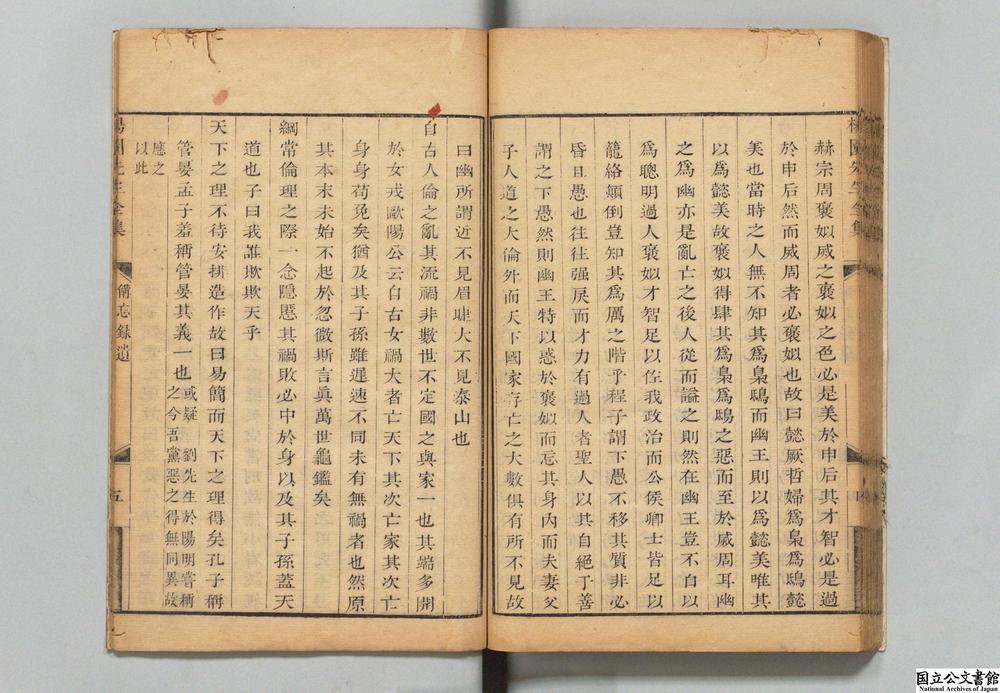 赫宗周褒姒烕之褒姒之色必是美於申后其才智必是過
於申后然而烕周者必褒姒也故曰懿厥哲婦爲梟爲鴟懿
美也當時之人無不知其爲梟鴟而幽王則以爲懿美唯其
以爲懿美故褒姒得肆其爲梟爲鴟之惡而至於烕周耳幽
之爲幽亦是亂亡之後人從而謚之則然在幽王豈不自以
爲聰明過人褒姒才智足以佐我政治而公侯卿士皆足以
籠絡顛倒豈知其爲厲之階乎程子謂下愚不移其質非必
昏且愚也往往强戾而才力有過人者聖人以其自絕于善
謂之下愚然則幽王特以惑於褒姒而忘其身內而夫妻父
子人道之大倫外而天下國家存亡之大數俱有所不見故
曰幽所謂近不見眉睫大不見泰山也
自古人倫之亂其流禍非數世不定國之與家一也其端多開
於女戎歐陽公云自古女禍大者亡天下其次亡家其次亡
身身苟免矣猶及其子孫雖遲速不同未有無禍者也然原
其本末未始不起於忽微斯言眞萬世龜鑑矣
綱常倫理之際一念隱慝其禍敗必中於身以及其子孫蓋天
道也子曰我誰欺欺天乎
天下之理不待安排造作故曰易簡而天下之理得矣孔子稱
管晏孟子羞稱管晏其義一也或疑劉先生於陽明嘗稱
之今吾黨惡之得無同異故
應之
以此
楊園先生全集
備忘錄遺
五
国立公文書館
National Archives of Japan